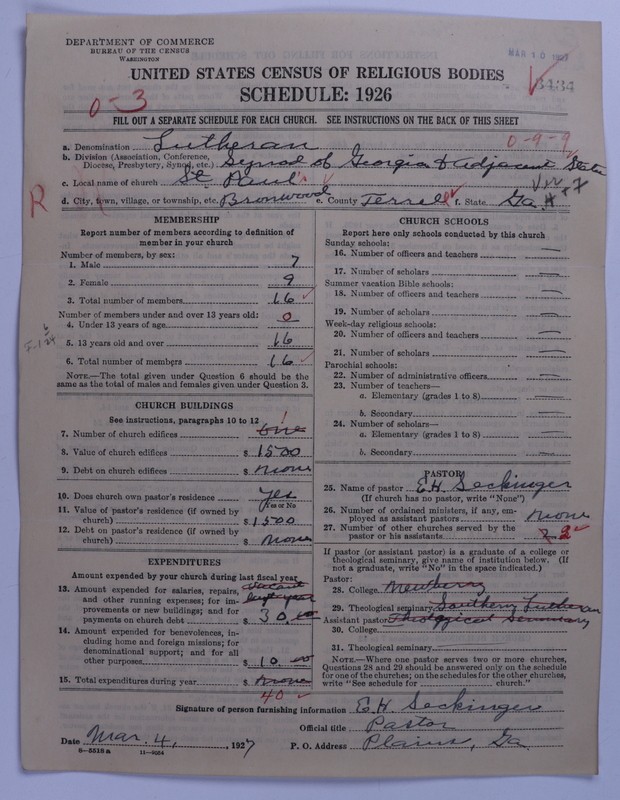 DEPARTMENT OF COMMERCE
BUREAU OF THE CENSUS
WASHINGTON
MAR 10 1927
UNITED STATES CENSUS OF RELIGIOUS BODIES
SCHEDULE: 1926
0-3
FILL OUT A SEPARATE SCHEDULE FOR EACH CHURCH. SEE INSTRUCTIONS ON THE BACK OF THIS SHEET
a. Denomination Lutheran 0-9-9
b. Division (Association, Conference, Diocese, Presbytery, Synod, etc.) Synod of Georgia & Adjacent State
c. Local name of church St Paul's
R
d. City, town, village, or township, etc. Bronwood e. County Terrell f. State. Ga.
MEMBERSHIP
Report number of members according to definition of
member in your church
Number of members, by sex:
1. Male 7
2. Female 9
3. Total number of members 16
Number of members under and over 13 years old:
4. Under 13 years of age 0
5. 13 years old and over 16
6. Total number of members 16
NOTE.—The total given under Question 6 should be the
same as the total of males and females given under Question 3.
CHURCH BUILDINGS
See instructions, paragraphs 10 to 12
7. Number of church edifices one 1
8. Value of church edifices $ 1500
9. Debt on church edifices $ none
10. Does church own pastor's residence yes
Yes or No
11. Value of pastor's residence (if owned by
church) $ 1500
12. Debt on pastor's residence (if owned by
church) $ none
EXPENDITURES
Amount expended by your church during last fiscal year
13. Amount expended for salaries, repairs, vacant
and other running expenses; for im- last year
provements or new buildings; and for
payments on church debt $ 30.00
14. Amount expended for benevolences, in-
cluding home and foreign missions; for
denominational support; and for all
other purposes $ 10.00
15. Total expenditures during year $ none
40
CHURCH SCHOOLS
Report here only schools conducted by this church
Sunday schools:
16. Number of officers and teachers
17. Number of scholars
Summer vacation Bible schools:
18. Number of officers and teachers
19. Number of scholars
Week-day religious schools:
20. Number of officers and teachers
21. Number of scholars
Parochial schools:
22. Number of administrative officers
23. Number of teachers—
a. Elementary (grades 1 to 8)
b. Secondary
24. Number of scholars—
a. Elementary (grades 1 to 8)
b. Secondary
PASTOR
25. Name of pastor E.H. Seckinger
(If church has no pastor, write "None")
26. Number of ordained ministers, if any, em-
ployed as assistant pastors none
27. Number of other churches served by the
pastor or his assistants 2
If pastor (or assistant pastor) is a graduate of a college or
theological seminary, give name of institution below. (If
not a graduate, write "No" in the space indicated.)
Pastor:
28. College Newberry
29. Theological seminary Southern Lutheran
Assistant pastor: Theological Seminary
30. College
31. Theological seminary
NOTE.—Where one pastor serves two or more churches,
Questions 28 and 29 should be answered only on the schedule
for one of the churches; on the schedules for the other churches,
write "See schedule for church."
Signature of person furnishing information E.H. Seckinger
Official title Pastor
Date Mar. 4, 1927 P. O. Address Plains, Ga
8-5518 a 11-9064